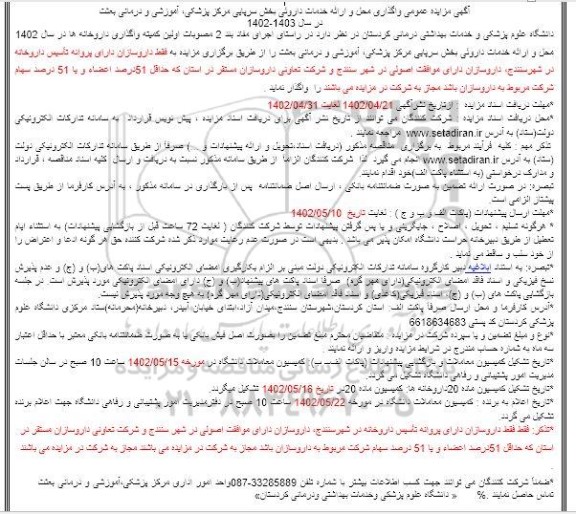 آگهی مزایده عمومی واگذاری محل و ارائه خدمات داروئی بخش سرپایی مرکز پزشکی، آموزشی و درمانی بعثت
در سال 1403-1402
دانشگاه علوم پزشکی و خدمات بهداشتی درمانی کردستان در نظر دارد در راستای اجرای مفاد بند 2 مصوبات اولین کمیته واگذاری داروخانه ها در سال 1402
محل و ارائه خدمات داروئی بخش سرپایی مرکز پزشکی، آموزشی و درمانی بعثت را از طریق برگزاری مزایده به فقط داروسازان دارای پروانه تأسیس داروخانه
در شهرسنندج، داروسازان دارای موافقت اصولی در شهر سنندج و شرکت تعاونی داروسازان مستقر در استان که حداقل 51درصد اعضاء و یا 51 درصد سهام
شرکت مربوط به داروسازان باشد مجاز به شرکت در مزایده می باشند را واگذار نماید .
*مهلت دریافت اسناد مزایده : ازتاریخ نشرآگهی 1402/04/21 لغایت 1402/04/31
*محل دریافت اسناد مزایده : شرکت کنندگان می توانند از تاریخ نشر آگهی برای دریافت اسناد مزایده ، پیش نویس قرارداد به سامانه تدارکات الکترونیکی
دولت(ستاد) به آدرس www.setadiran.ir مرجعه نمایند .
تذکر مهم : کلیه فرآیند مربوط به برگزاری مناقصه مذکور (دریافت اسناد،تحویل و ارائه پیشنهادات و ...) صرفا از طریق سامانه تدارکات الکترونیکی دولت
(ستاد) به آدرس www.setadiran.ir انجام می گیرد لذا شرکت کنندگان الزاما از طریق سامانه مذکور نسبت به دریافت و ارسال کلیه اسناد مناقصه ، قرارداد
و مدارک درخواستی (به استثناء پاکت الف)خود اقدام نمایند.
تبصره: در صورت ارائه تضمین به صورت ضمانتنامه بانکی ، ارسال اصل ضمانتنامه پس از بارگذاری در سامانه مذکور ، به آدرس کارفرما از طریق پست
پیشتاز الزامی است.
*مهلت ارسال پیشنهادات (پاکت الف و ب و ج ) : لغایت تاریخ 1402/05/10
* هرگونه تسلیم ، تحویل ، اصلاح ، جایگزینی و یا پس گرفتن پیشنهادات توسط شرکت کنندگان ( لغایت 72 ساعت قبل از بازگشایی پیشنهادات) به استثناء ایام
تعطیل از طریق دبیرخانه حراست دانشگاه امکان پذیر می باشد . بدیهی است در صورت عدم رعایت موارد ذکر شده شرکت کننده حق هر گونه ادعا و اعتراض را
از خود سلب و ساقط می نماید .
*تبصره: به استناد ابلاغیه دبیر کارگروه سامانه تدارکات الکترونیکی دولت مبنی بر الزام بکارگیری امضای الکترونیکی اسناد پاکت های(ب) و (ج) و عدم پذیرش
نسخ فیزیکی و اسناد فاقد امضای الکترونیکی(داری مهر گرم) صرفا اسناد پاکت های پیشنهاد(ب) و (ج) دارای امضای الکترونیکی مورد پذیرش است. در جلسه
بازگشایی پاکت های (ب) و (ج)، نسخ فیزیکی(کاغذی) و اسناد فاقد امضای الکترونیکی(دارای مهر گرم) به هیچ وجه مورد پذیرش نیست.
*آدرس کارفرما و محل ارسال صرفا پاکت الف: استان کردستان-شهرستان سنندج-میدان آزاد-ابتدای خیابان آبیدر- دبیرخانه(محرمانه)ستاد مرکزی دانشگاه علوم
پزشکی کردستان کد پستی 6618634683
*نوع و مبلغ تضمین و یا سپرده شرکت در مزایده : متقاضیین محترم مبلغ تضمین رابصورت اصل فیش بانکی یا به صورت ضمانتنامه بانکی معتبر با حداقل اعتبار
سه ماه به شماره حساب مندرج در شرایط مزایده واریز و ارائه نمایند.
*تاریخ تشکیل کمیسیون معاملات و بازگشایی پیشنهادات (پاکات الف،ب) : کمیسیون معاملات دانشگاه در مورخه 1402/05/15 ساعت 10 صبح در سالن جلسات
مدیریت امور پشتیبانی و رفاهی دانشگاه تشکیل می گردد .
*تاریخ تشکیل کمیسیون ماده 20داروخانه ها: کمیسیون ماده 20در تاریخ 1402/05/18 تشکیل میگردد.
*تاریخ اعلام به برنده : کمیسیون معاملات دانشگاه در مورخه 1402/05/22 ساعت 10 صبح در دفترمدیریت امور پشتیبانی و رفاهی دانشگاه جهت اعلام برنده
تشکیل می گردد
*تذکر: فقط فقط داروسازان دارای پروانه تأسیس داروخانه در شهرسنندج، داروسازان دارای موافقت اصولی در شهر سنندج و شرکت تعاونی داروسازان مستقر در
استان که حداقل 51درصد اعضاء و یا 51 درصد سهام شرکت مربوط به داروسازان باشد مجاز به شرکت در مزایده می باشند مجاز به شرکت در مزایده می باشند
.
*ضمناً شرکت کنندگان می توانند جهت کسب اطلاعات بیشتر با شماره تلفن 33285889-087واحد امور اداری مرکز پزشکی،آموزشی و درمانی بعثت
تماس حاصل نمایند .% « دانشگاه علوم پزشکی وخدمات بهداشتی ودرمانی کردستان»